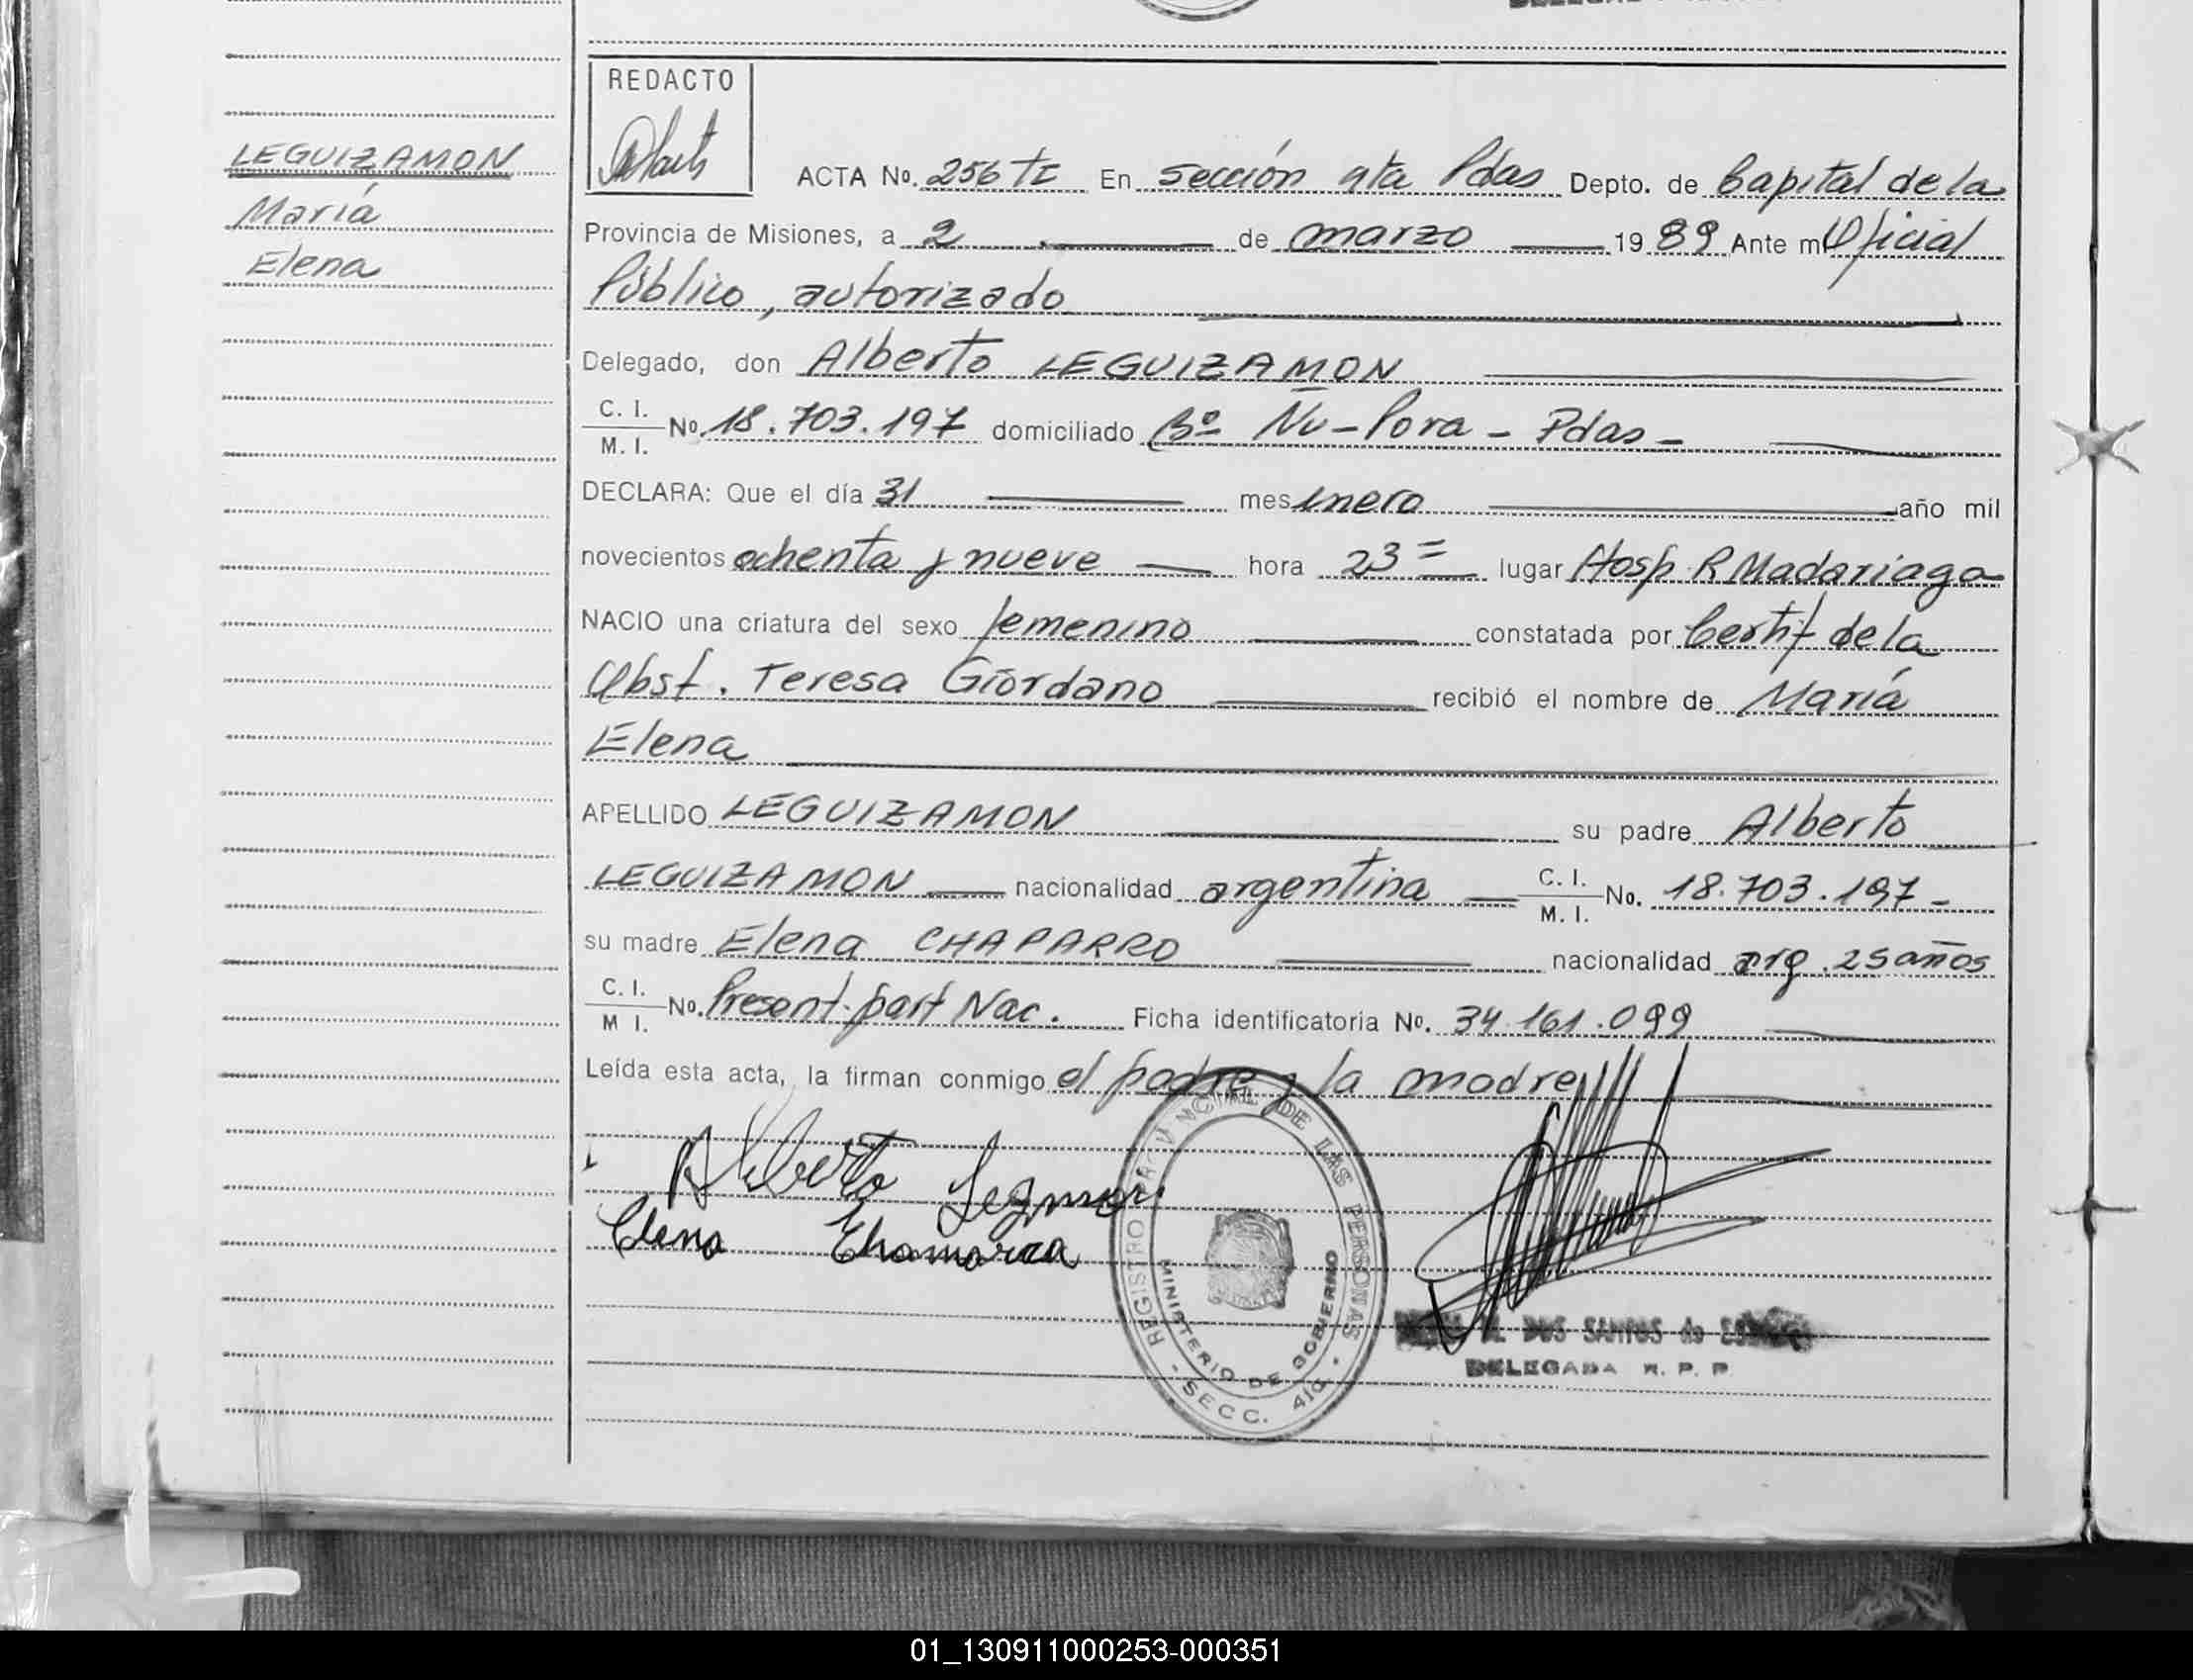 LEGUIZAMON
María
Elena
REDACTO
ACTA No. 256 TI En Sección 4ta Pdas Depto. de Capital de la
Provincia de Misiones, a 2 de marzo 1989 Ante mí Oficial
Público, autorizado
Delegado, don Alberto LEGUIZAMON
C. I. M. I. No. 18.703.197 domiciliado Bº Ñu-Pora - Pdas -
DECLARA: Que el día 31 mes enero año mil
novecientos ochenta y nueve hora 23= lugar Hosp. R Madariaga
NACIO una criatura del sexo femenino constatada por Certif de la
Obst. Teresa Giordano recibió el nombre de María
Elena
APELLIDO LEGUIZAMON su padre Alberto
LEGUIZAMON nacionalidad argentina C. I. M. I. No. 18.703.197 -
su madre Elena CHAPARRO nacionalidad arg. 25 años
C. I. M I. No. Present. part Nac. Ficha identificatoria No. 34.161.099
Leída esta acta, la firman conmigo el padre y la madre
Alberto
Elena
REGISTRO DE LAS PERSONAS
MINISTERIO DE GOBIERNO
- SECC. 4ta -
DOS SANTOS de
DELEGADA R. P. P.
01_130911000253-000351